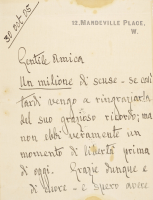 30 Oct 05
12. MANDEVILLE PLACE,
W.
Gentile Amica
Un milione di scuse - se così
tardi vengo a ringraziarla
del suo grazioso ricordo, ma
non ebbi veramente un
momento di libertà prima
di oggi. Grazie dunque e
di cuore - e spero avere